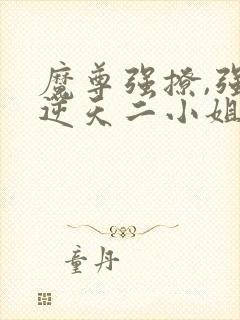 魔尊强撩,强
逆天二小姐
童丹